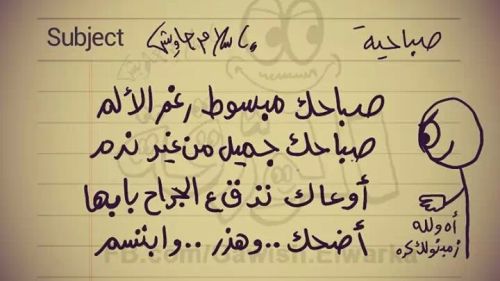 Subject إسلام جاويش صباحية
صباحك مبسوط رغم الألم
صباحك جميل من غير ندم
أوعاك تدق ع الجراح بابها
أضحك .. وهزر .. وابتسم
أه ولله
زمبقولك كده
FB.com/Gawish.Elwarka